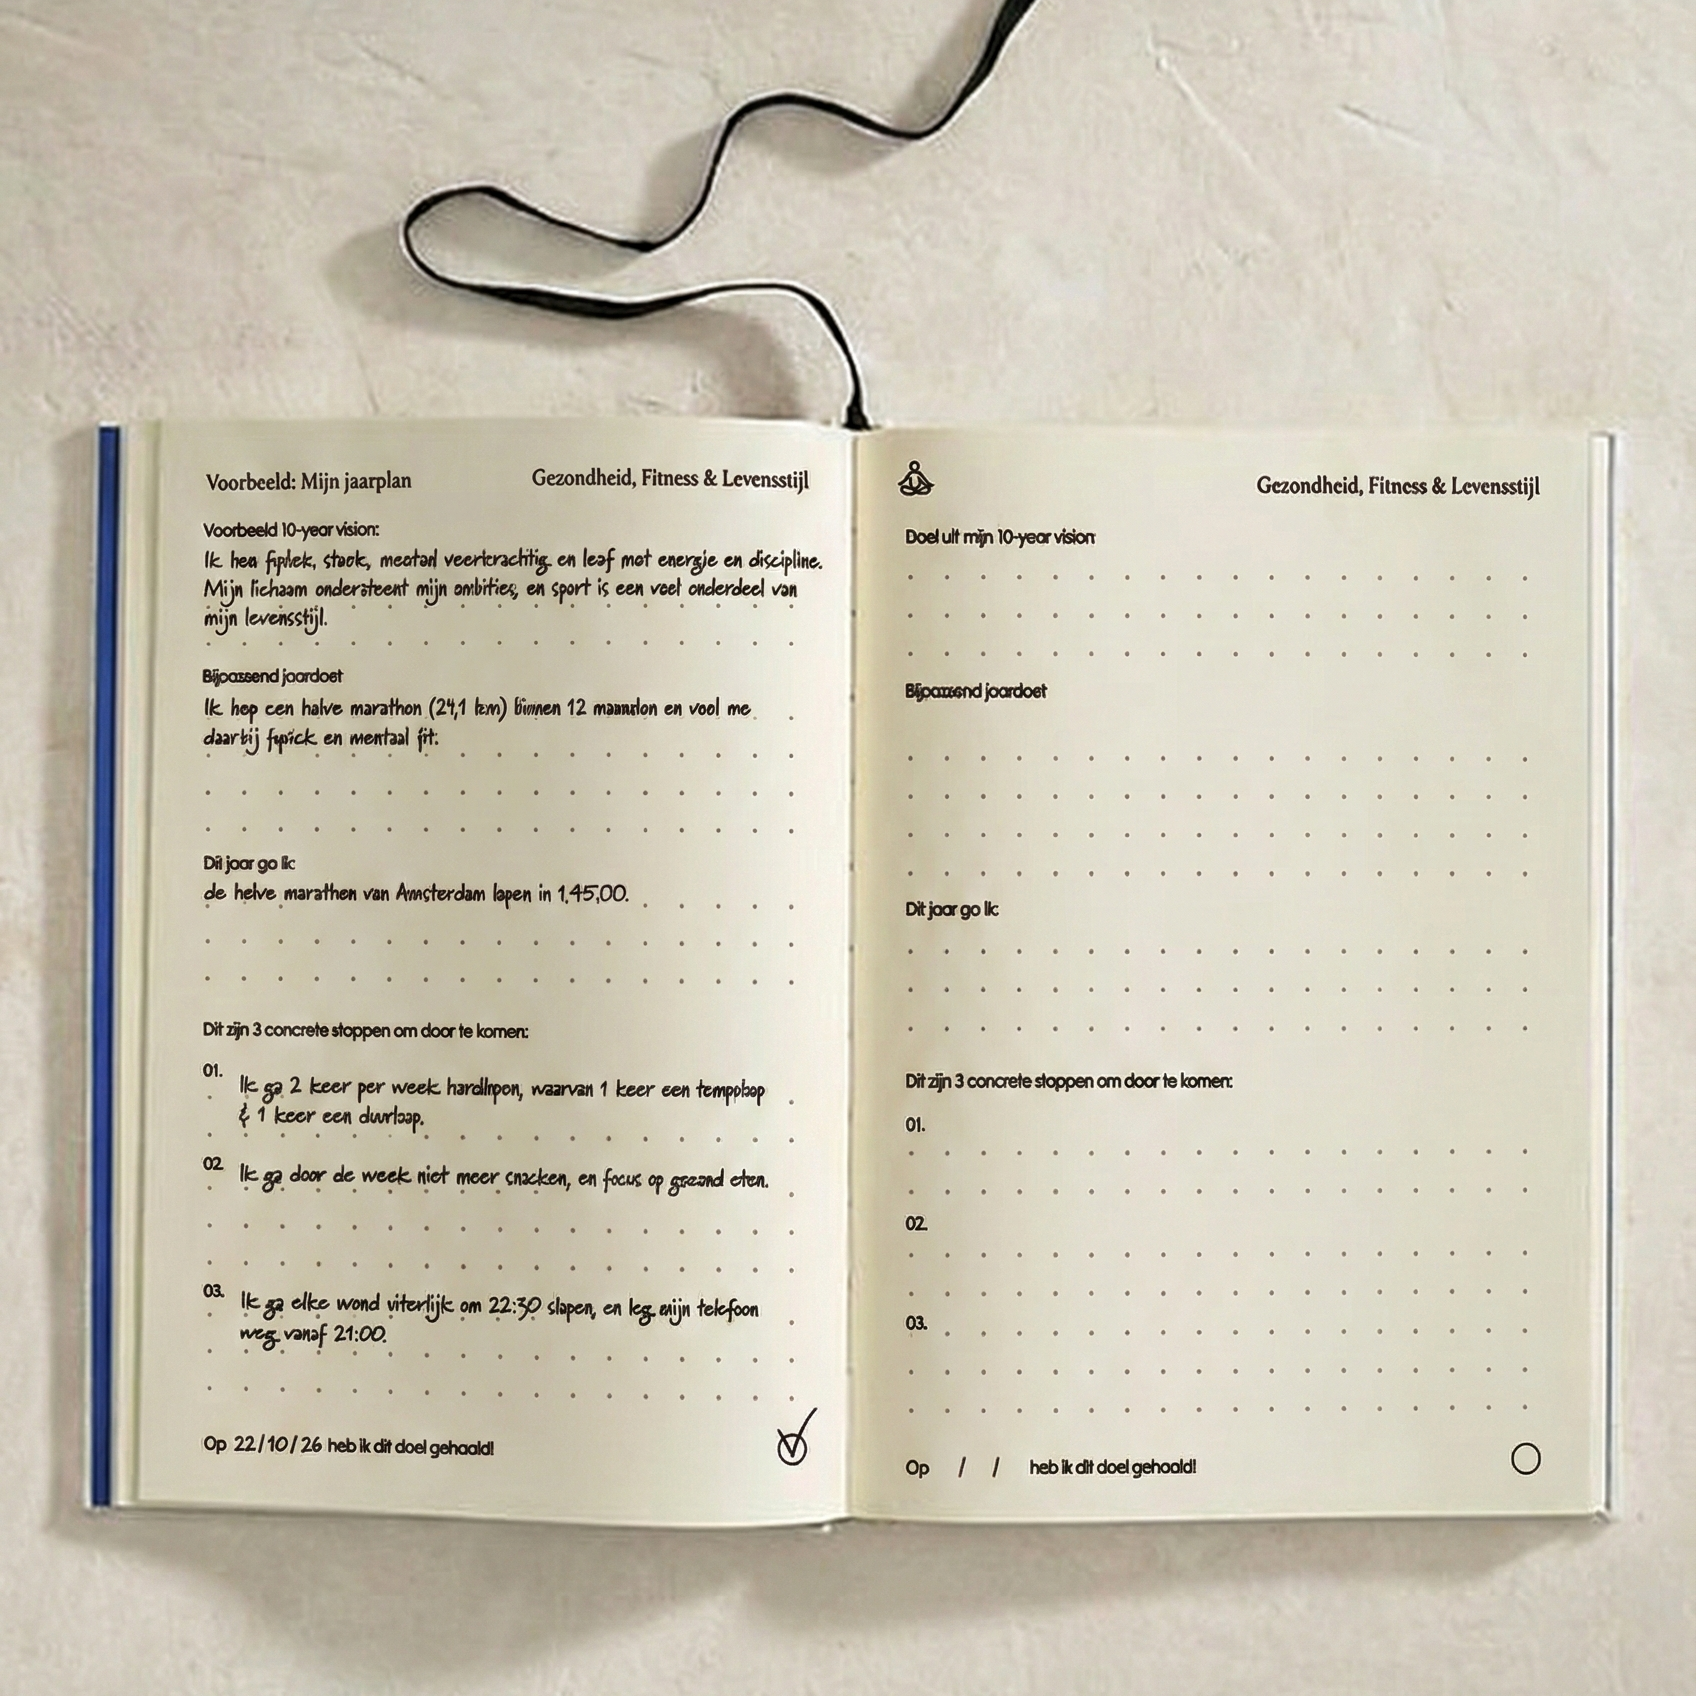 Voorbeeld: Mijn jaarplan
Gezondheid, Fitness & Levensstijl
Voorbeeld 10-year vision:
Ik hea fiphek, stook, meotad veerkrachtig en leaf mot energie en discipline.
Mijn lichaam ondersteent mijn ambities, en sport is een voet onderdeel van
mijn levensstijl.
Bijpassend jaardoet
Ik hop een halve marathon (24,1 km) binnen 12 en vool me
daarbij en mentaal fit.
Dit jaar go Ik
de helve marathen van Amsterdam lopen in 1,45,00.
Dit zijn 3 concrete stoppen om door te komen:
01.
Ik ga 2 keer per week waarvan 1 keer een
& 1 keer een duurloop.
02
Ik ga door de week niet meer snacken, en focus op gezond eten.
03.
Ik ga elke wond viterlijk om 22:30 slapen, en leg mijn telefoon
weg vanaf 21:00.
Op 22/10/26 heb ik dit doel gehaald!
Gezondheid, Fitness & Levensstijl
Doel uit mijn 10-year vision
Bijpassend jaardoet
Dit jaar go Ik
Dit zijn 3 concrete stoppen om door te komen:
01.
02.
03.
Op / / heb ik dit doel gehaald!